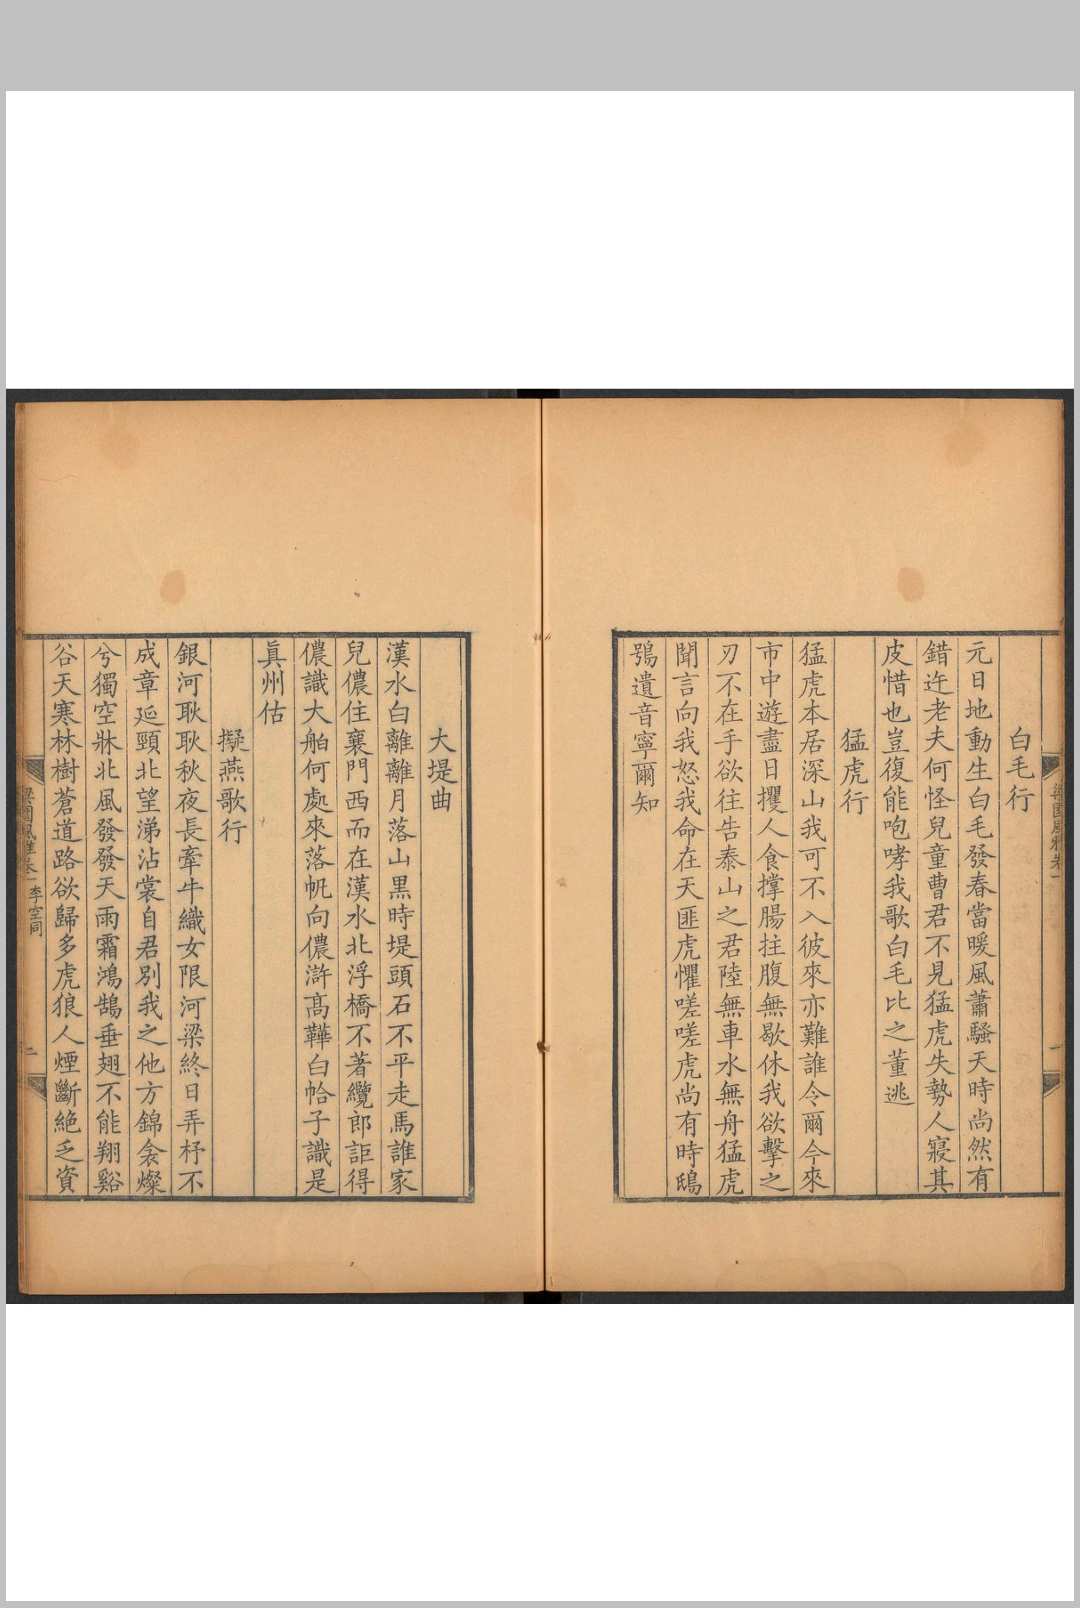 梁園風雅卷一
一
白毛行
元日地動生白毛發春當暖風蕭騷天時尚然有
錯迕老夫何怪兒童曹君不見猛虎失勢人寢其
皮惜也豈復能咆哮我歌白毛比之董逃
猛虎行
猛虎本居深山我可不入彼來亦難誰令爾今來
市中遊盡日攫人食撑腸拄腹無歇休我欲擊之
刃不在手欲往告泰山之君陸無車水無舟猛虎
聞言向我怒我命在天匪虎懼嗟嗟虎尚有時鴟
鴞遺音寧爾知
大堤曲
漢水白離離月落山黑時堤頭石不平走馬誰家
兒儂住襄門西而在漢水北浮橋不著纜郎詎得
儂識大舶何處來落帆向儂滸髙鞾白帢子識是
眞州估
擬燕歌行
銀河耿耿秋夜長牽牛織女限河梁終日弄杼不
成章延頸北望涕沾裳自君別我之他方錦衾燦
兮獨空牀北風發發天雨霜鴻鵠垂翅不能翔谿
谷天寒林樹蒼道路欲歸多虎狼人煙斷絶乏資
梁園風雅卷一
李空同
二